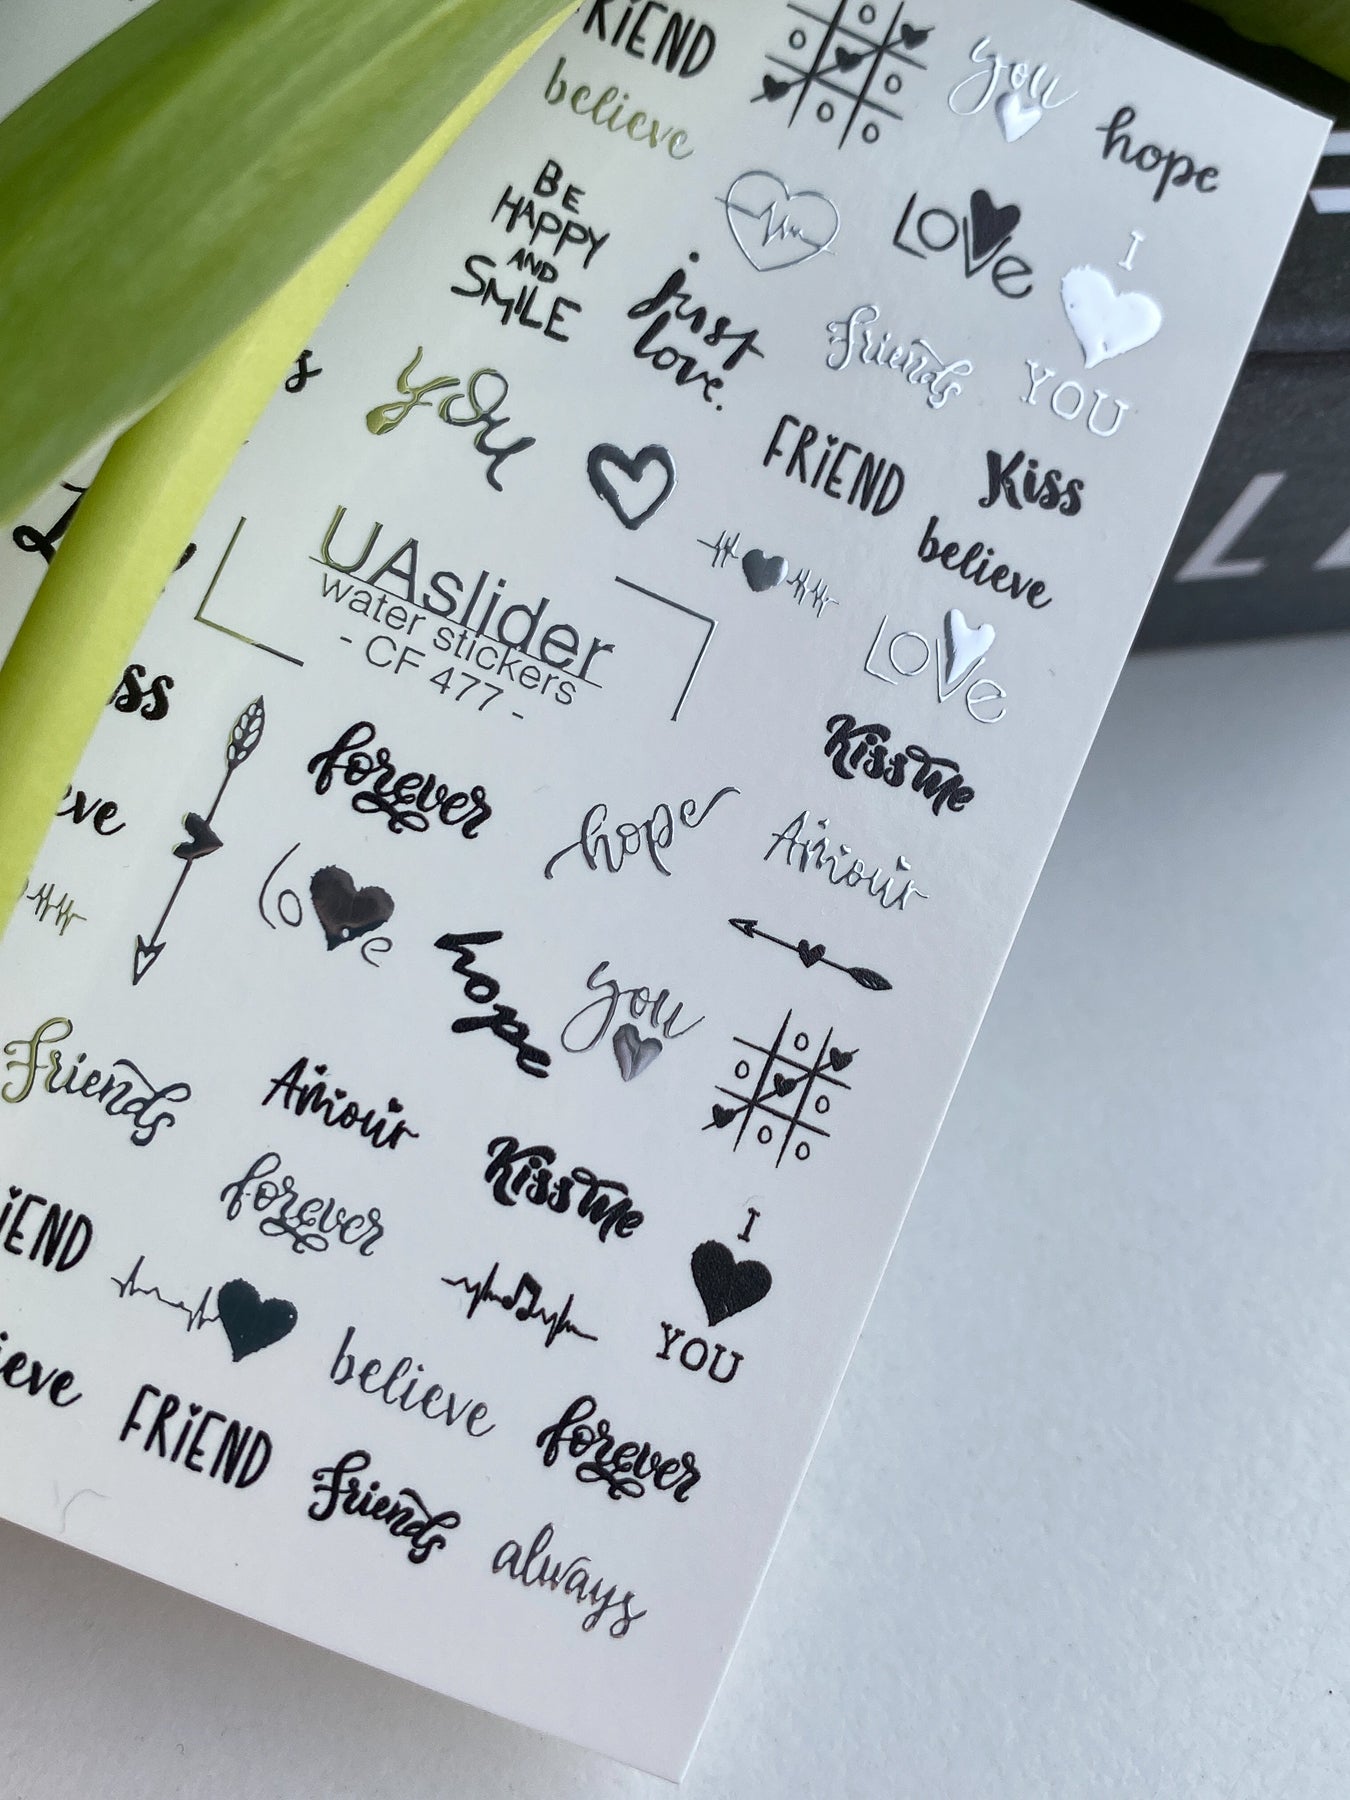 FRiEND
you
believe
hope
BE
HAPPY
AND
SMiLE
LOVe
I
YOU
just
love.
friends
you
FRiEND
Kiss
believe
UAslider
water stickers
- CF 477 -
LOVe
Kiss Me
forever
hope
Amour
love
hope
you
friends
Amour
Kiss Me
forever
I
YOU
believe
forever
FRiEND
friends
always